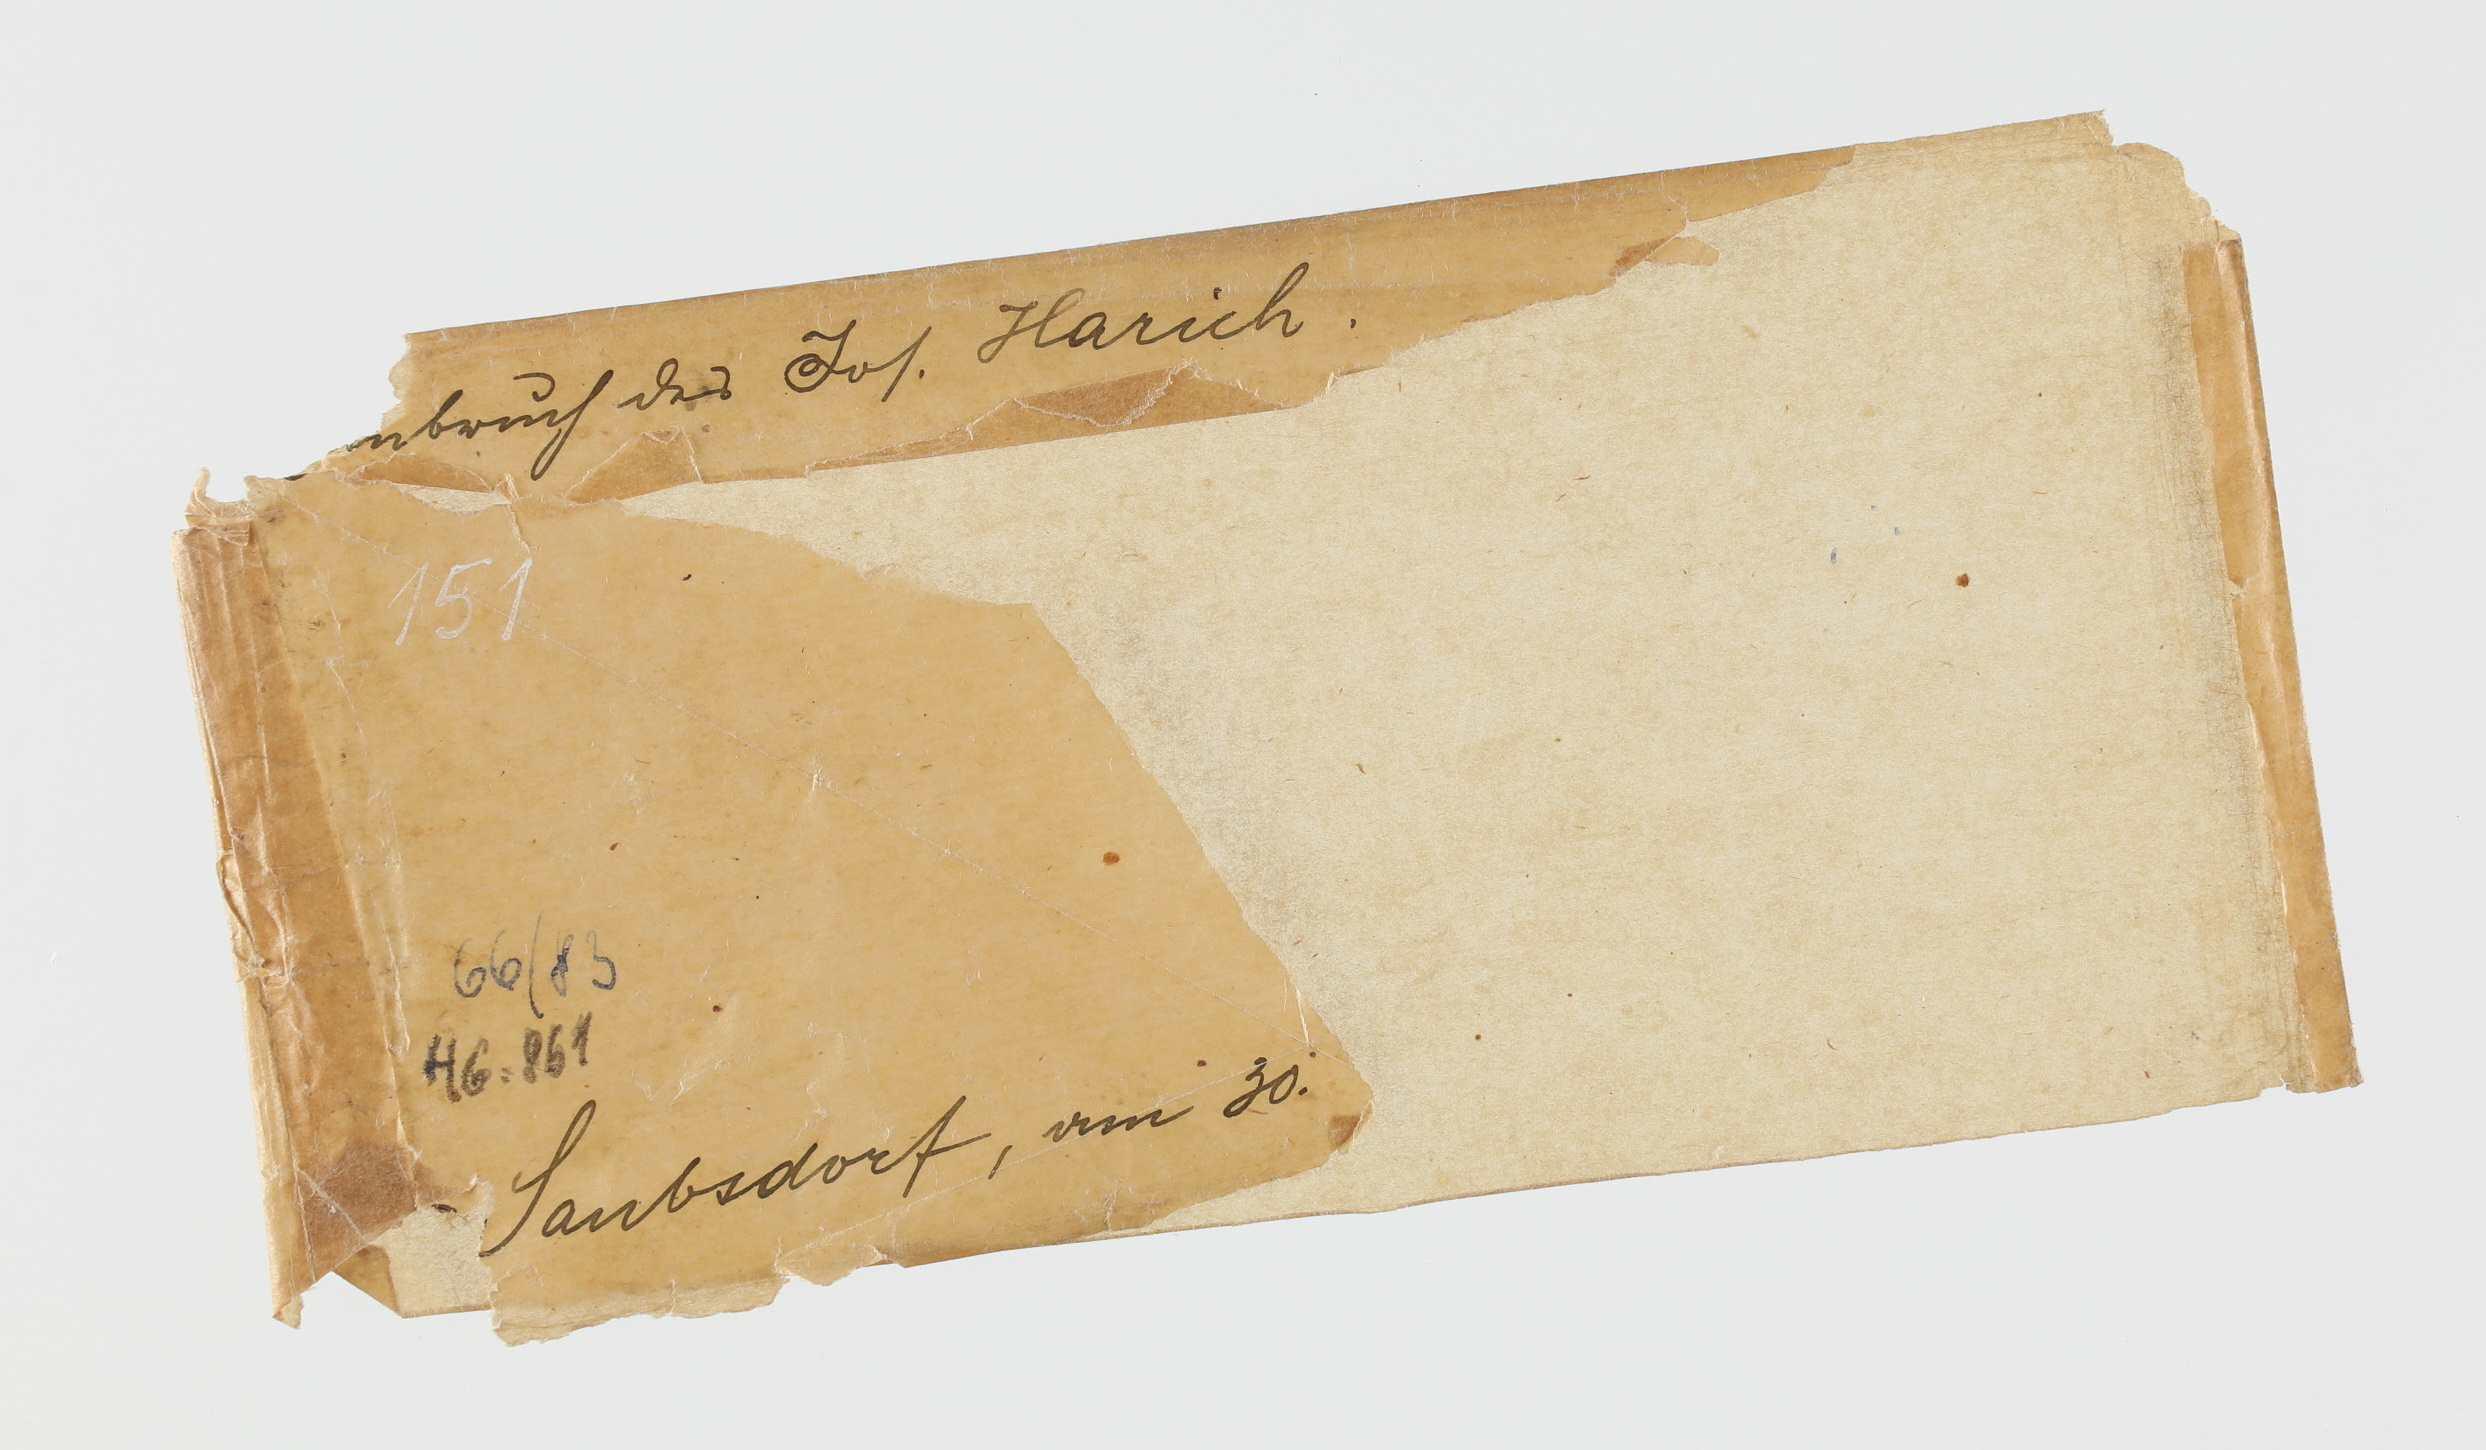 nbruch des Jos. Harich.
151
66/83
HG. 861
Saubsdorf, am 30.